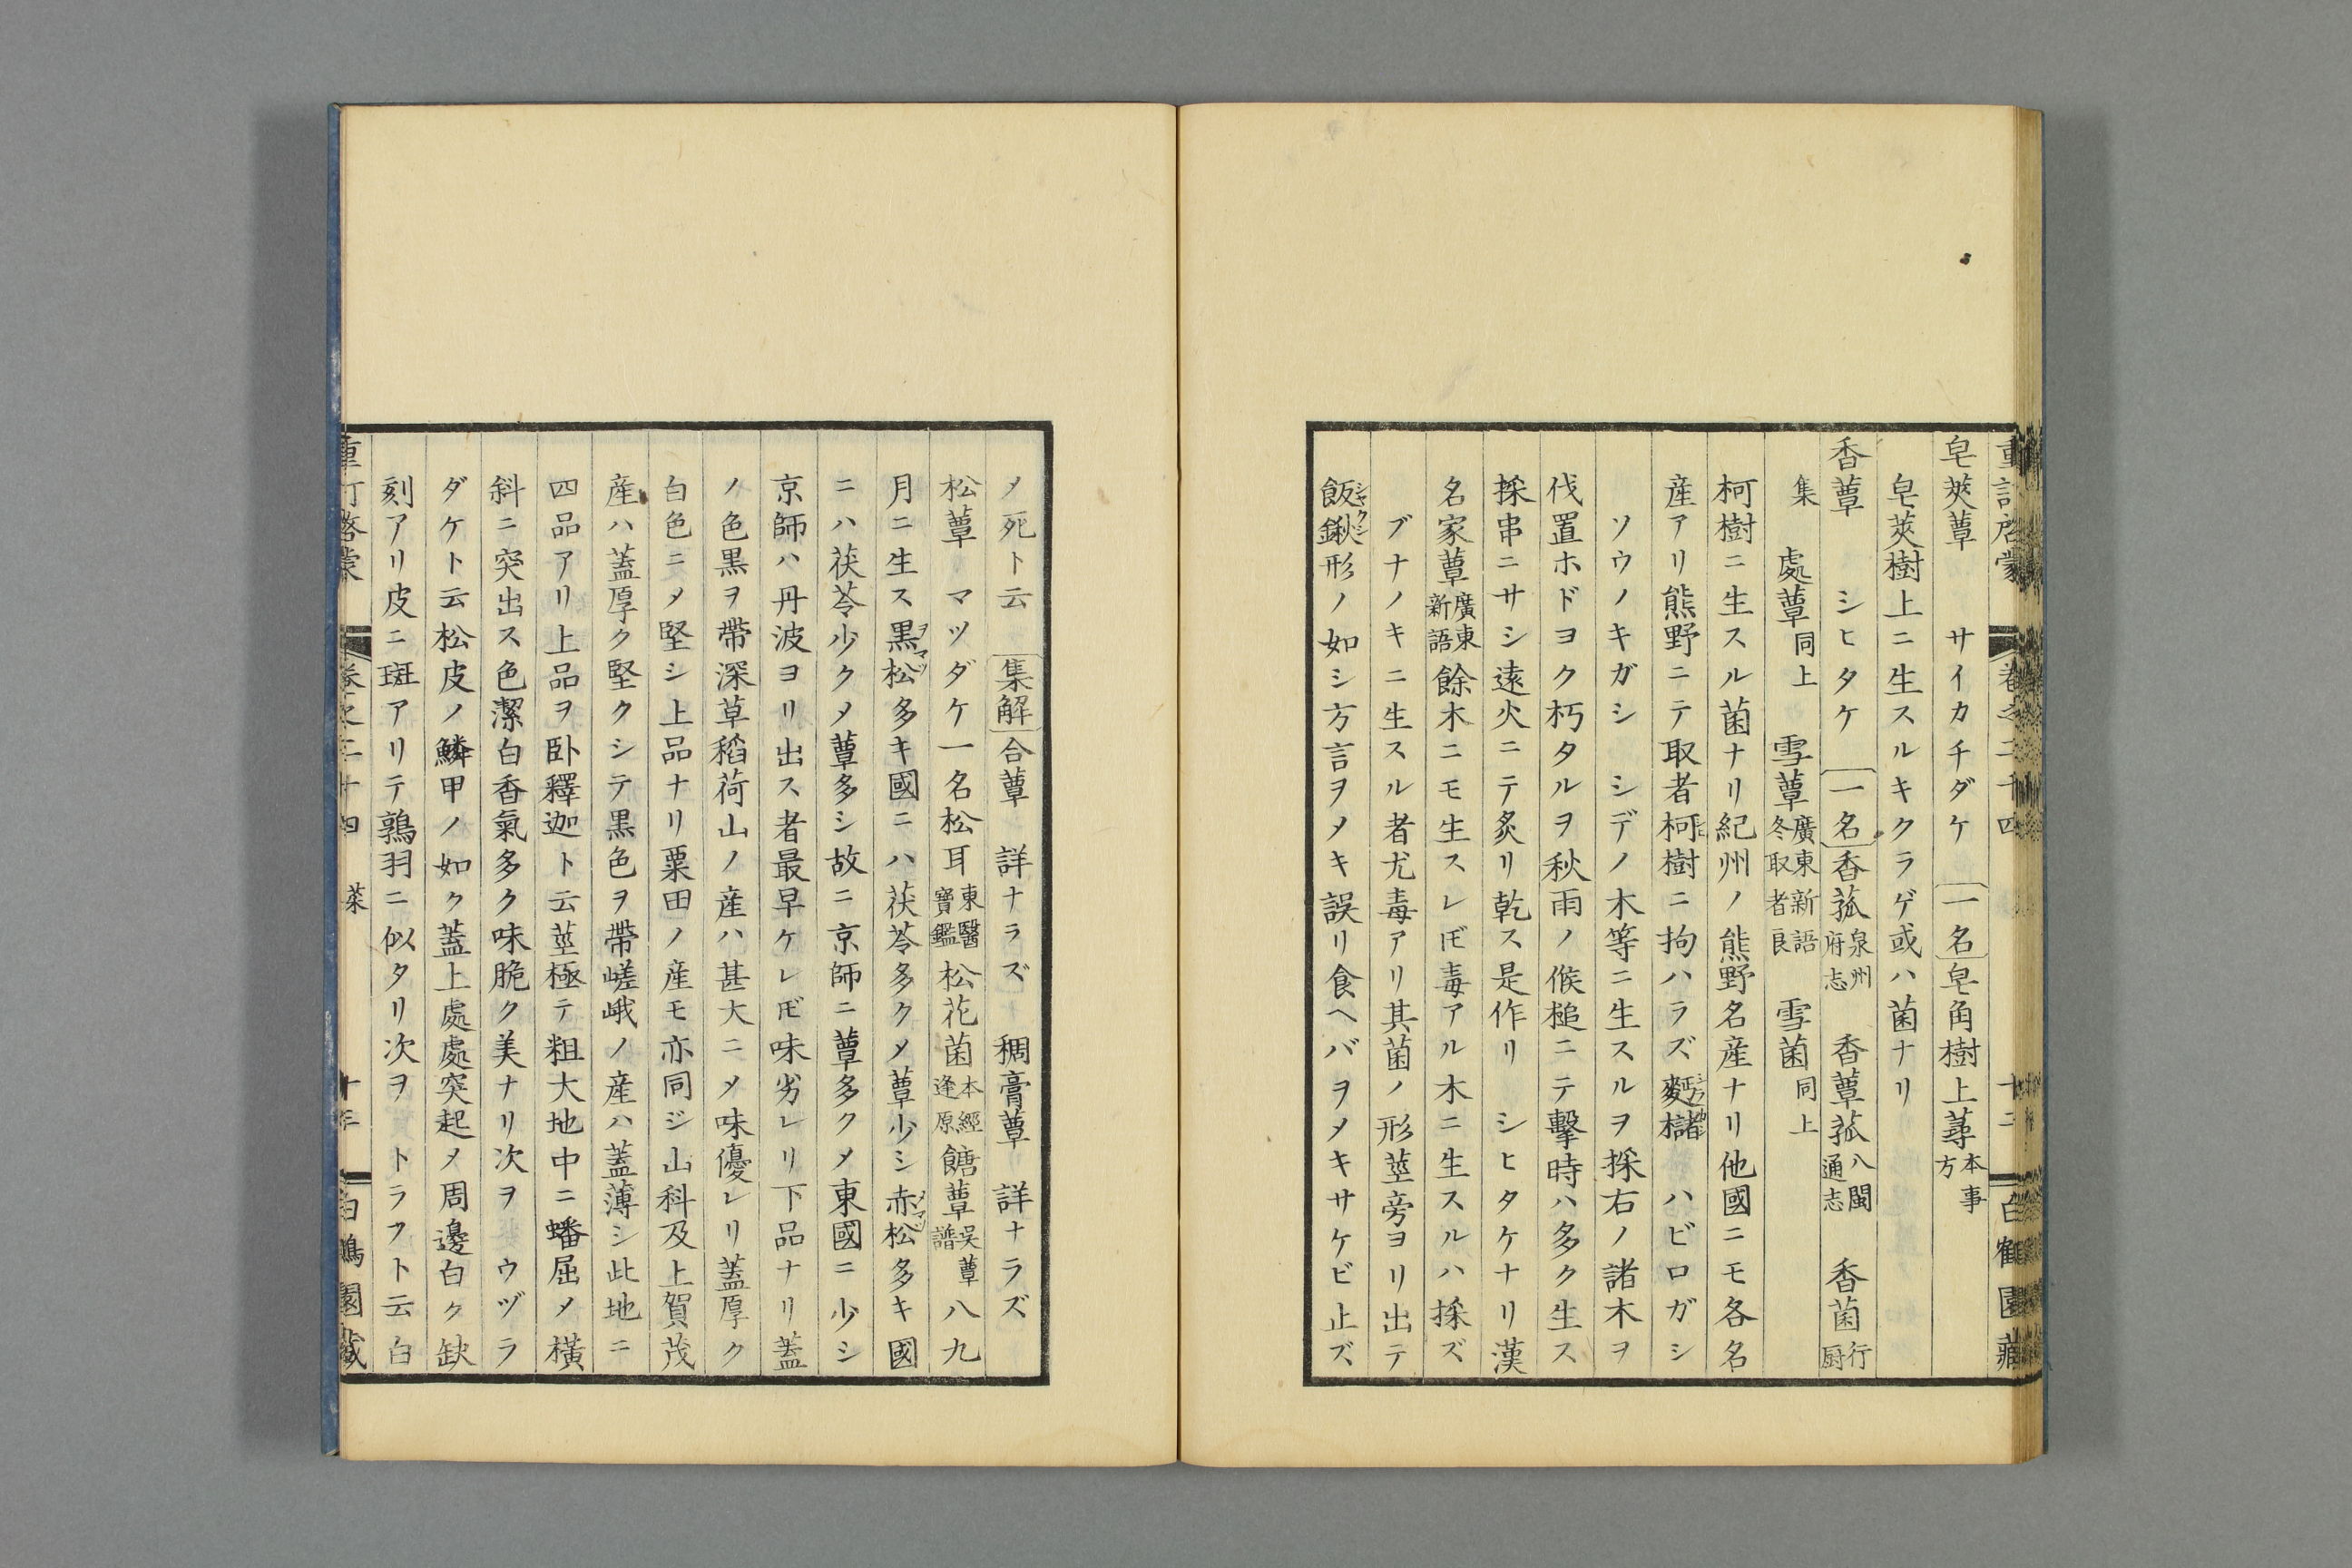 重訂啓蒙 卷之二十四 十二 白鶴園藏
皂莢蕈 サイカチダケ 一名皂角樹上蕈本事方
皂莢樹上ニ生スルキクラゲ或ハ菌ナリ
香蕈 シヒタケ 一名香菰泉州府志 香蕈菰八閩通志 香菌行厨
集 處蕈同上 雪蕈廣東新語冬取者良 雪菌同上
柯樹ニ生スル菌ナリ紀州ノ熊野名産ナリ他國ニモ各名
産アリ熊野ニテ取者柯樹ニ拘ハラズ麪櫧 ハビロガシ
ソウノキガシ シデノ木等ニ生スルヲ採右ノ諸木ヲ
伐置ホドヨク朽タルヲ秋雨ノ候槌ニテ擊時ハ多ク生ス
採串ニサシ遠火ニテ炙リ乾ス是作リ シヒタケナリ漢
名家蕈廣東新語餘木ニモ生スレ𪜈毒アル木ニ生スルハ採ズ
ブナノキニ生スル者尤毒アリ其菌ノ形莖旁ヨリ出テ
飯鍬シャクシ形ノ如シ方言ヲメキ誤リ食ヘバヲメキサケビ止ズ
〆死ト云 集解合蕈 詳ナラズ 稠膏蕈 詳ナラズ
松蕈 マツダケ一名松耳東醫寶鑑松花菌本經逢原餹蕈吴蕈譜八九
月ニ生ス黒松ヲマツ多キ國ニハ茯苓多ク〆蕈少シ赤松メマツ多キ國
ニハ茯苓少ク〆蕈多シ故ニ京師ニ蕈多ク〆東國ニ少シ
京師ハ丹波ヨリ出ス者最早ケレ𪜈味劣レリ下品ナリ蓋
ノ色黒ヲ帶深草稻荷山ノ産ハ甚大ニ〆味優レリ蓋厚ク
白色ニ〆堅シ上品ナリ粟田ノ産モ亦同ジ山科及上賀茂
産ハ蓋厚ク堅クシテ黒色ヲ帶嵯峨ノ産ハ蓋薄シ此地ニ
四品アリ上品ヲ卧釋迦ト云莖極テ粗大地中ニ蟠屈〆橫
斜ニ突出ス色潔白香氣多ク味脆ク美ナリ次ヲ ウヅラ
ダケト云松皮ノ鱗甲ノ如ク蓋上處處突起〆周邊白ク缺
刻アリ皮ニ斑アリテ鶉羽ニ似タリ次ヲ トラフト云白
重訂啓蒙 卷之二十四 菜 十三 白鶴園藏